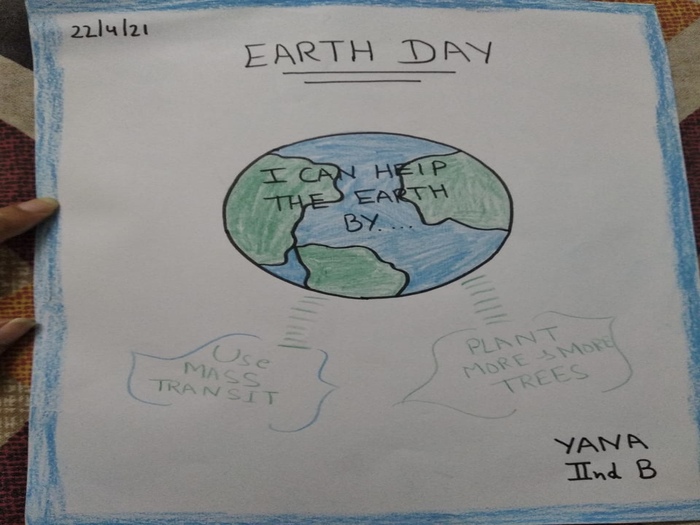 22/4/21
EARTH DAY
I CAN HElP
THE EARTH
BY....
Use
MASS
TRANSIT
PLANT
MORE & MORE
TREES
YANA
IInd B